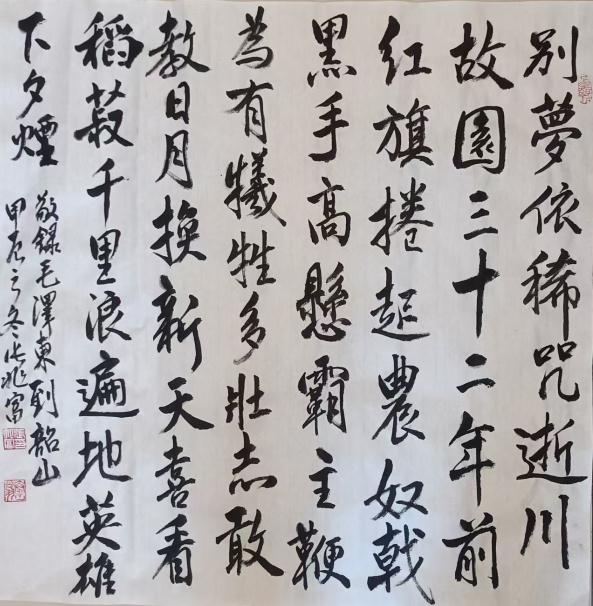 别夢依稀咒逝川
故園三十二年前
红旗捲起農奴戟
黑手高懸霸主鞭
為有犧牲多壯志敢
教日月换新天喜看
稻菽千里浪遍地英雄
下夕煙
敬録毛澤東到韶山
甲辰之冬